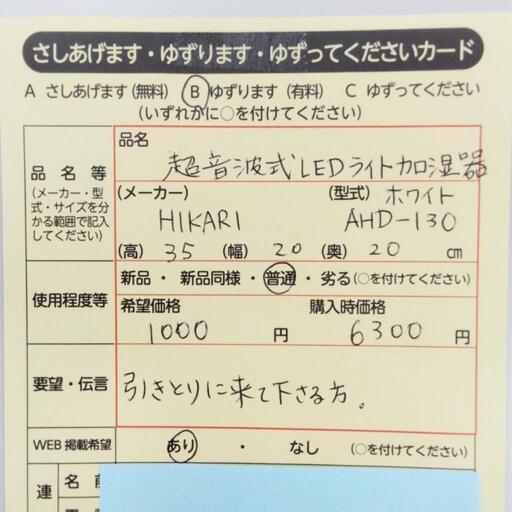 さしあげます・ゆずります・ゆずってくださいカード
A さしあげます(無料) Ⓑゆずります(有料) C ゆずってください
(いずれかに○を付けてください)
品名等
(メーカー・型式・サイズを分かる範囲で記入してください)
品名
超音波式LEDライト加湿器
(メーカー) (型式) ホワイト
HIKARI AHD-130
(高) 35 (幅) 20 (奥) 20 cm
使用程度等
新品・新品同様・普通・劣る(○を付けてください)
希望価格 購入時価格
1000 円 6300 円
要望・伝言
引きとりに来て下さる方。
WEB掲載希望 あり ・ なし (○を付けてください)
連 名前